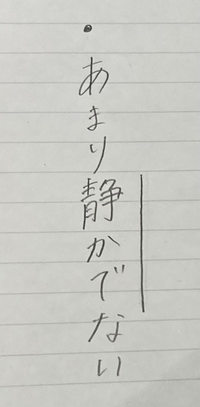 ・あまり静かでない